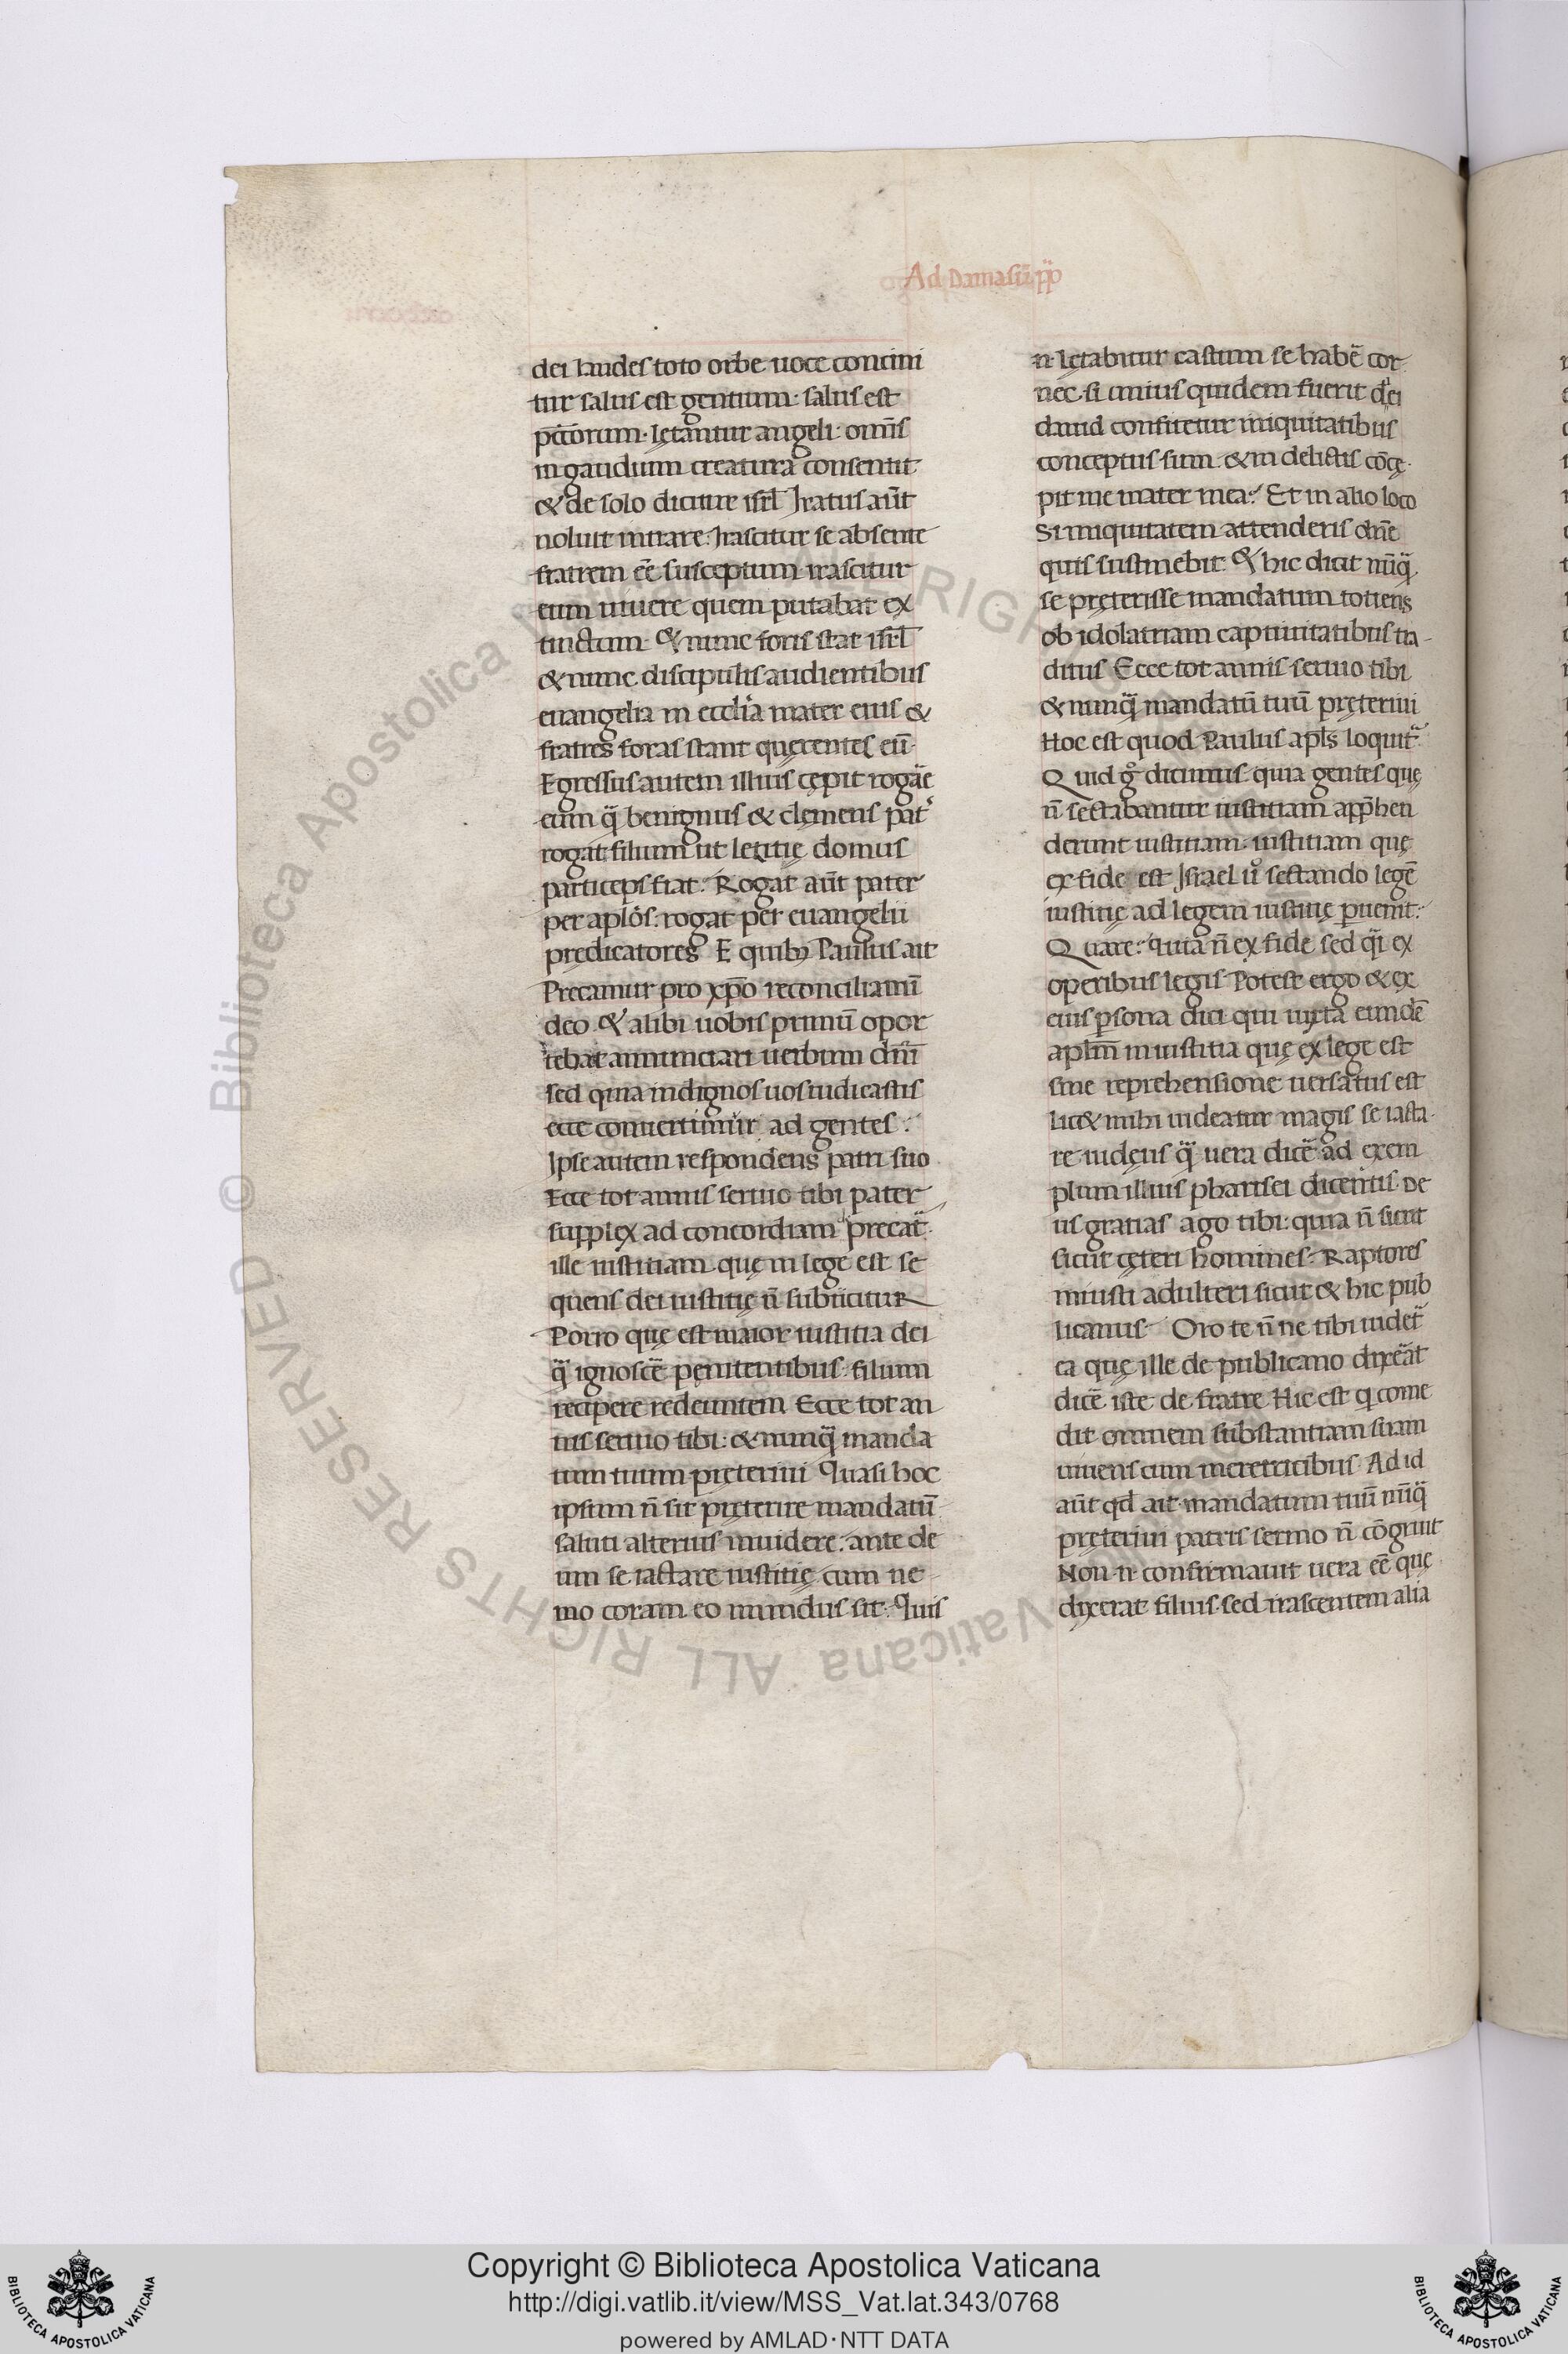 Ad Damasū pp̄
dei laudes toto orbe uoce concini
tur salus est gentium· salus est
pctōrum· lętantur angeli· omīs
in gaudium creatura consentit
& de solo dicitur isrl̄ Iratus aūt
noluit intrare· Irascitur se absente
fratrem eē susceptum· irascitur
eum uiuere quem putabat ex
tinctum· & nunc foris stat isrl̄
& nunc discipulis audientibus
euangelia in eccl̄ia mater eius &
fratres foras stant quęrentes eū·
Egressus autem illius cępit rogar̄e
eum q̄ benignus & clęmens pat̄
rogat filium ut letitię domus
particeps fiat· Rogat aūt pater
per aplōs· rogat per euangelii
prędicatores E quib; Paulus ait
Precamur pro xp̄o reconciliamī
deo & alibi uobis primū opor
tebat annunciari uerbum dn̄i
sed quia indignos uos iudicastis
ecce conuertimur ad gentes·
Ipse autem respondens patri suo
Ecce tot annis seruio tibi pater
supplex ad concordiam precat̄·
ille iustitiam quę in lege est se
quens dei iustitię n̄ subiicitur
Porro quę est maior iustitia dei
q̄ ignoscē pęnitentibus· filium
recipere redeuntem Ecce tot an
nis seruio tibi· & nunq̄ manda
tum tuum pręteriui Quasi hoc
ipsum n̄ sit pręterire mandatū
saluti alterius inuidere· ante de
um se iactare iustitię cum ne
mo coram eo mundus sit· Quis
n· lętabitur castum se habē cor
nec si unius quidem fuerit diei
dauid confitetur iniquitatibus
conceptus sum & in delictis cōcę
pit me mater mea· Et in alio loco
Si iniquitatem attenderis dn̄e
quis sustinebit· & hic dicit nūq̄
se pręterisse mandatum totiens
ob idolatriam captiuitatibus tra-
ditus Ecce tot annis seruio tibi
& nunq̄ mandatū tuū pręteriui
Hoc est quod Paulus apls̄ loquit̄
Quid g° dicimus quia gentes quę
n̄ sectabantur iustitiam app̄hen
derunt iustitiam· iustitiam quę
ex fide est Israel u° sectando legē
iustitię ad legem iustitię p̱uenit·
Quare· quia n̄ ex fide sed q̄i ex
operibus legis Potest ergo & ex
eius p̱sona dici qui iuxta eundē
aplm̄ in iustitia quę ex lege est
sine reprehensione uersatus est
lic& mihi uideatur magis se iacta-
re iudęus q̄ uera dicē ad exem
plum illius pharisei dicentis· De
us gratias ago tibi· quia n̄ sicut
sicut cęteri homines· Raptores
iniusti adulteri sicut & hic pub
licanus Oro te n̄ ne tibi uidet̄
ea quę ille de publicano dixēat
dicē iste de fratre Hic est q come
dit omnem substantiam suam
uiuens cum meretricibus Ad id
aūt qd ait mandatum tuū nūq̄
pręteriui patris sermo n̄ cōgruit
Non n· confirmauit uera eē quę
dixerat filius· sed irascentem alia
Copyright © Biblioteca Apostolica Vaticana
http://digi.vatlib.it/view/MSS_Vat.lat.343/0768
powered by AMLAD·NTT DATA
BIBLIOTECA APOSTOLICA VATICANA
BIBLIOTECA APOSTOLICA VATICANA
© Biblioteca Apostolica Vaticana ALL RIGHTS RESERVED